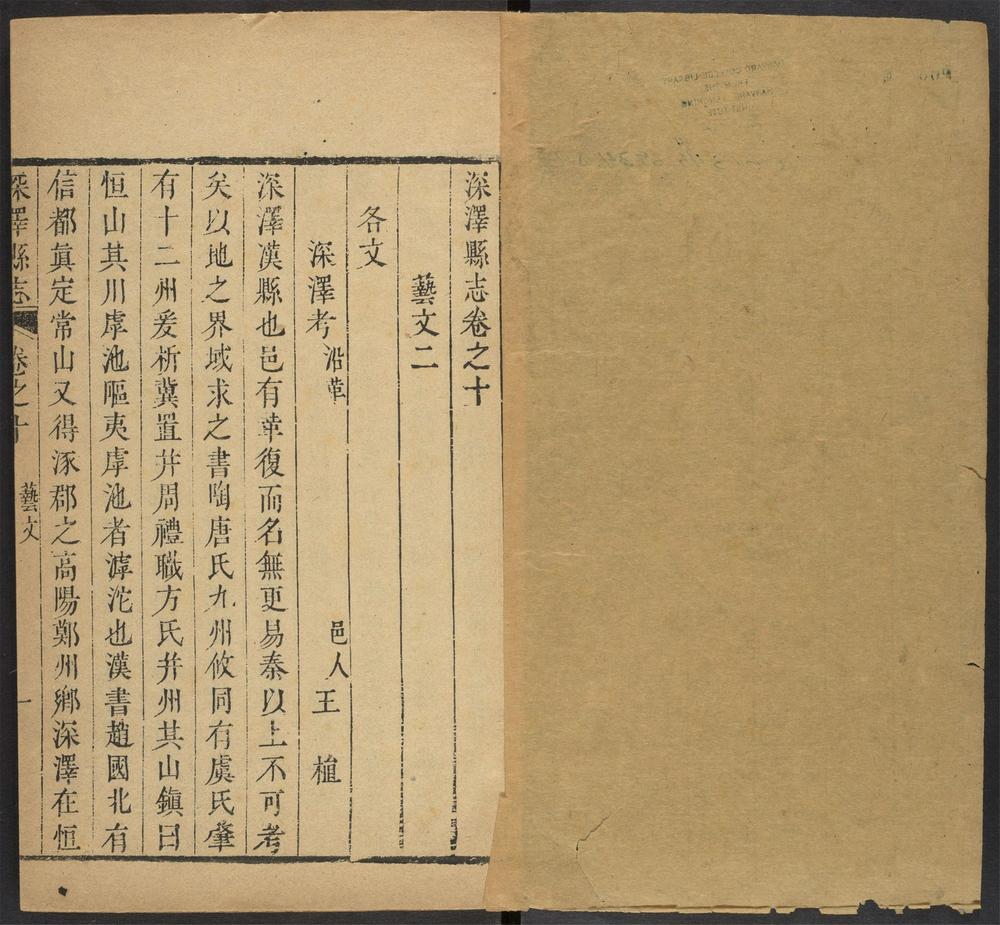 深澤縣志卷之十
藝文二
各文
深澤考 沿革 邑人 王植
深澤漢縣也邑有革復而名無更易秦以上不可考
矣以地之界域求之書陶唐氏九州攸同有虞氏肇
有十二州爰析冀置并周禮職方氏并州其山鎮曰
恒山其川虖池嘔夷虖池者滹沱也漢書趙國北有
信都眞定常山又得涿郡之高陽鄭州鄉深澤在恒
深澤縣志 卷之十 藝文 一